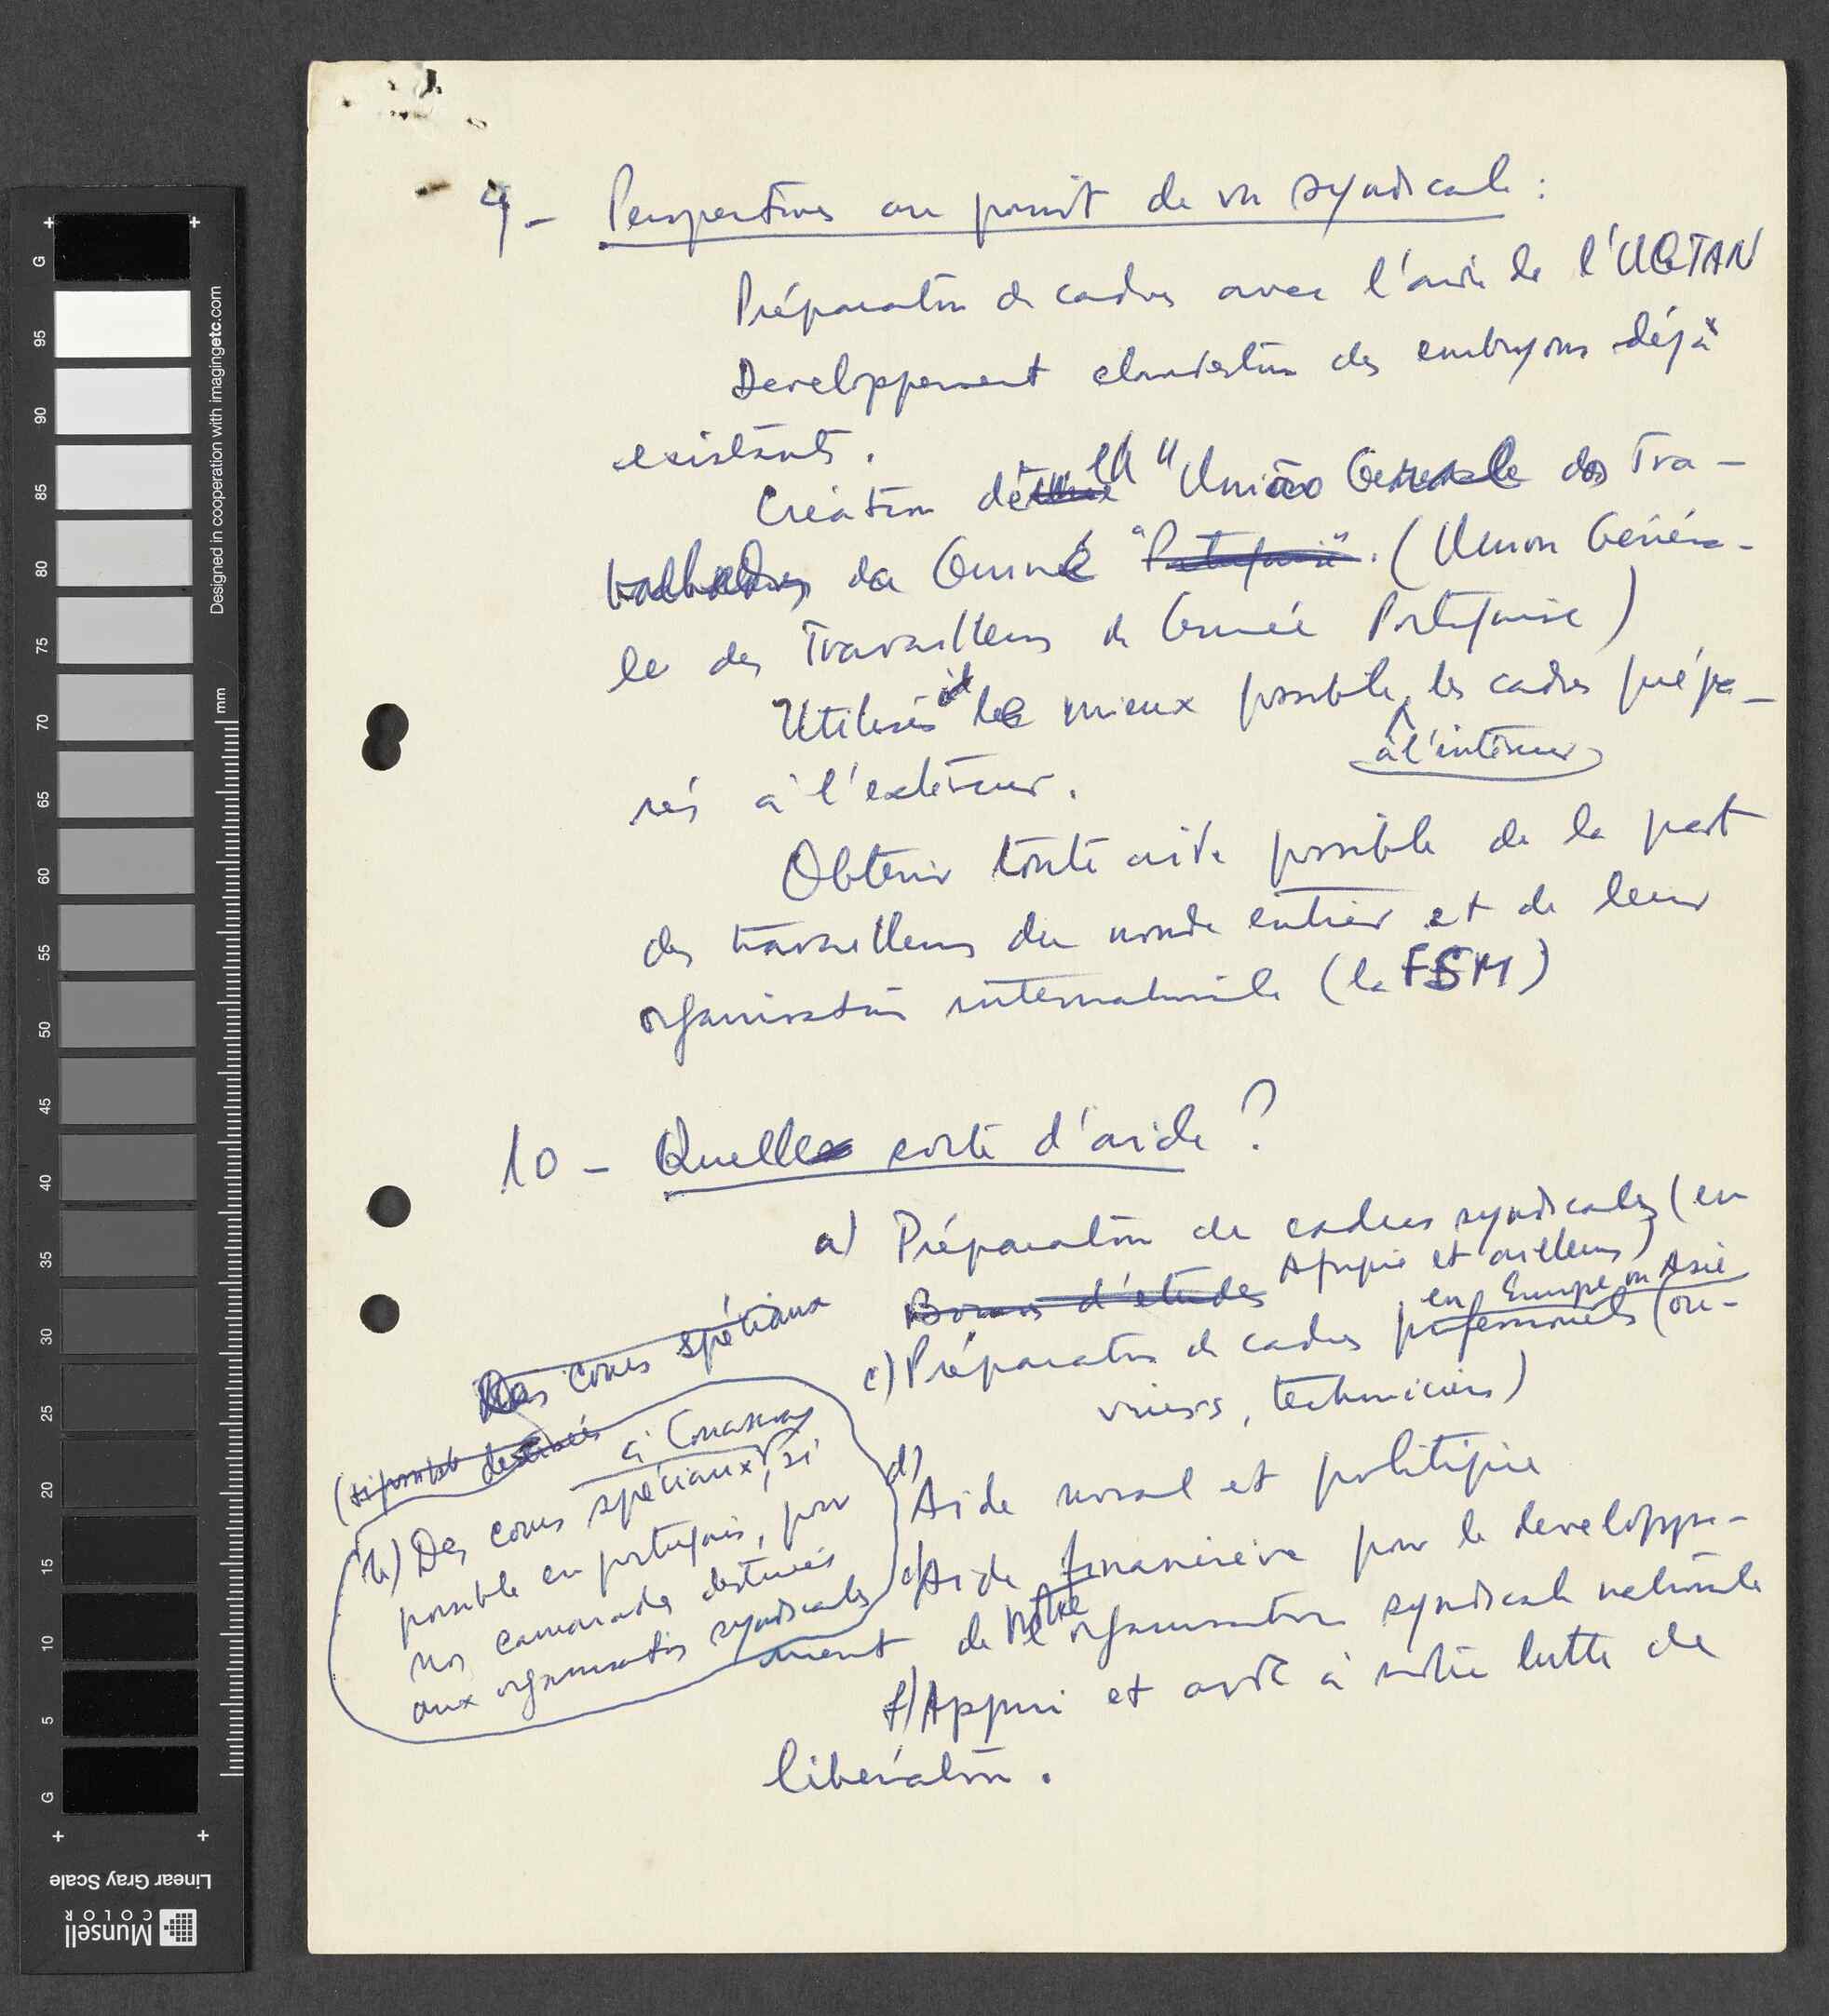 9 - Perspectives au point de vue syndicale :
Préparation de cadres avec l'aide de l'UGTAN
Developpement clandestin des embryons déjà
existants.
Création de la "União Generale dos Tra-
balhadores da Guiné "Portugaise". (Union Généra-
le des Travailleurs de Guinée Portugaise)
Utiliser le mieux possible, les cadres prépa-
à l'intérieur
rés à l'extérieur.
Obtenir toute aide possible de la part
des travailleurs du monde entier et de leur
organisation internationale (la FSM)
10 - Quelle sorte d'aide ?
a) Préparation de cadres syndicales (en
Afrique et ailleurs)
Bourses d'études
en Europe ou Asie
c) Préparation de cadres professionels (ou-
vriers, techniciens)
Des cours spéciaux
(si possible destinés
à Conakry
b) Des cours spéciaux, si
possible en portugais, pour
nos camarades destinés
aux organisations syndicales
d) Aide moral et politique
e) Aide financière pour le developpe-
ment de notre organisation syndicale nationale
f) Appui et aide à notre lutte de
libération.
G
95
90
85
80
75
70
65
60
55
50
45
40
35
30
25
20
15
10
5
G
mm
Designed in cooperation with imagingetc.com
Linear Gray Scale
Munsell
COLOR